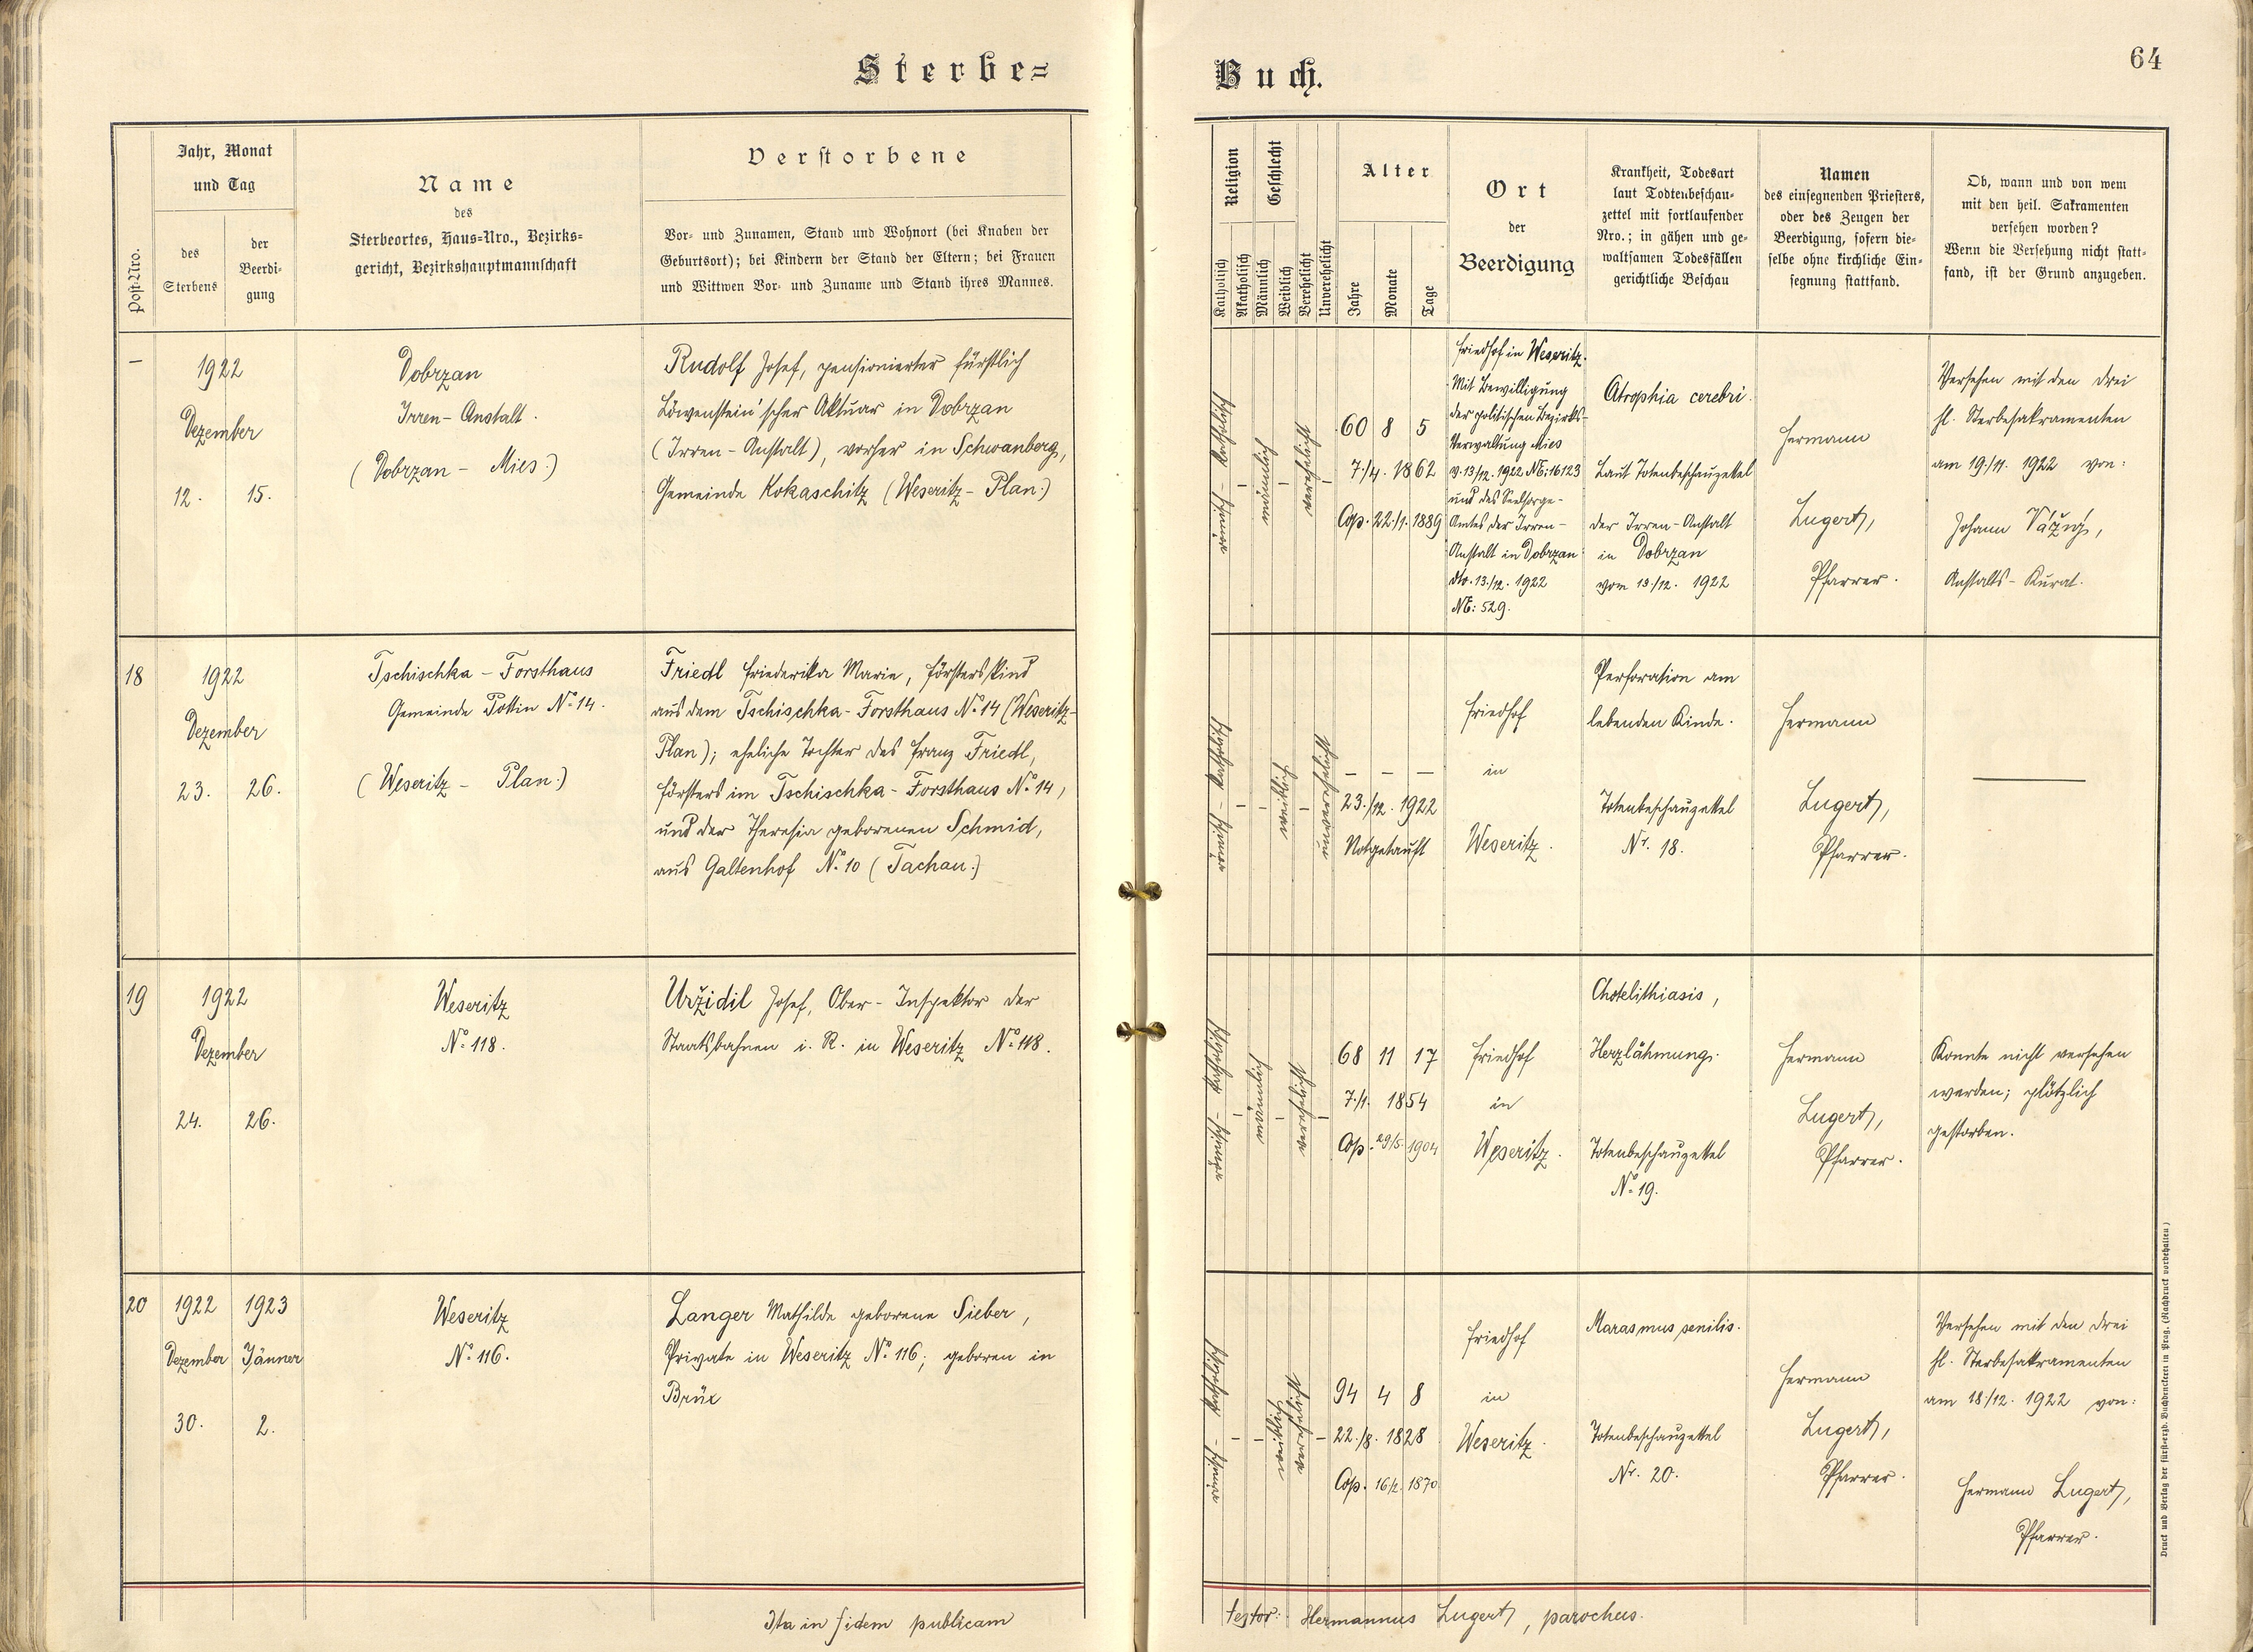 Sterbe=
Jahr, Monat
und Tag
Post-Nro.
des
Sterbens
der
Beerdi-
gung
Name
des
Sterbeortes, Haus=Nro., Bezirks=
gericht, Bezirkshauptmannschaft
Verstorbene
Vor- und Zunamen, Stand und Wohnort (bei Knaben der
Geburtsort); bei Kindern der Stand der Eltern; bei Frauen
und Wittwen Vor- und Zuname und Stand ihres Mannes.
–
1922
Dezember
12. 15.
Dobrzan
Irren-Anstalt.
(Dobrzan – Mies.)
Rudolf Josef, pensionierter fürstlich
Löwenstein'scher Aktuar in Dobrzan
(Irren-Anstalt), vorher in Schwanberg,
Gemeinde Kokaschitz (Weseritz-Plan.)
18
1922
Dezember
23. 26.
Tschischka – Forsthaus
Gemeinde Pottin No 14.
(Weseritz – Plan.)
Friedl Friederika Marie, Försterskind
aus dem Tschischka-Forsthaus No 14 (Weseritz-
Plan); eheliche Tochter des Franz Friedl,
Försters im Tschischka-Forsthaus No 14,
und der Theresia geborenen Schmid,
aus Galtenhof No 10 (Tachau.)
19
1922
Dezember
24. 26.
Weseritz
No 118.
Uržidil Josef, Ober-Inspektor der
Staatsbahnen i. R. in Weseritz No 118.
20
1922 1923
Dezember Jänner
30. 2.
Weseritz
No 116.
Langer Mathilde geborene Sieber,
Private in Weseritz No 116; geboren in
Brüx
Ita in fidem publicam
Buch.
64
Religion
Geschlecht
Katholisch
Akatholisch
Männlich
Weiblich
Verehelicht
Unverehelicht
Alter
Jahre
Monate
Tage
Ort
der
Beerdigung
Krankheit, Todesart
laut Todtenbeschau-
zettel mit fortlaufender
Nro.; in gähen und ge-
waltsamen Todesfällen
gerichtliche Beschau
Namen
des einsegnenden Priesters,
oder des Zeugen der
Beerdigung, sofern die-
selbe ohne kirchliche Ein-
segnung stattfand.
Ob, wann und von wem
mit den heil. Sakramenten
versehen worden?
Wenn die Versehung nicht statt-
fand, ist der Grund anzugeben.
männlich
verehelicht
60 8 5
7./4. 1862
Cop. 22./1. 1889
Friedhof in Weseritz.
Mit Bewilligung
der politischen Bezirks-
Verwaltung Mies
v. 13/12. 1922 NE: 16123
und des Seelsorge-
Amtes der Irren-
Anstalt in Dobrzan
dto. 13./12. 1922
NE: 529.
Atrophia cerebri.
Laut Totenbeschauzettel
der Irren-Anstalt
in Dobrzan
vom 13./12. 1922
Hermann
Lugert,
Pfarrer.
Versehen mit den drei
hl. Sterbesakramenten
am 19./11. 1922 von:
Johann
Anstalts-Kurat.
weiblich
unverehelicht
– – –
23./12. 1922
Notgetauft
Friedhof
in
Weseritz.
Perforation am
lebenden Kinde.
Totenbeschauzettel
Nr. 18.
Hermann
Lugert,
Pfarrer.
männlich
verehelicht
68 11 17
7./1. 1854
Cop. 29/5. 1904
Friedhof
in
Weseritz.
Cholelithiasis,
Herzlähmung.
Totenbeschauzettel
No 19.
Hermann
Lugert,
Pfarrer.
Konnte nicht versehen
werden; plötzlich
gestorben.
weiblich
verehelicht
94 4 8
22./8. 1828
Cop. 1870
Friedhof
in
Weseritz.
Marasmus senilis.
Totenbeschauzettel
Nr. 20.
Hermann
Lugert,
Pfarrer.
Versehen mit den drei
hl. Sterbesakramenten
am 18./12. 1922 von:
Hermann Lugert,
Pfarrer.
testor: Hermannus Lugert, parochus.
Druck und Verlag der fürst-erzb. Buchdruckerei in Prag. (Nachdruck vorbehalten)